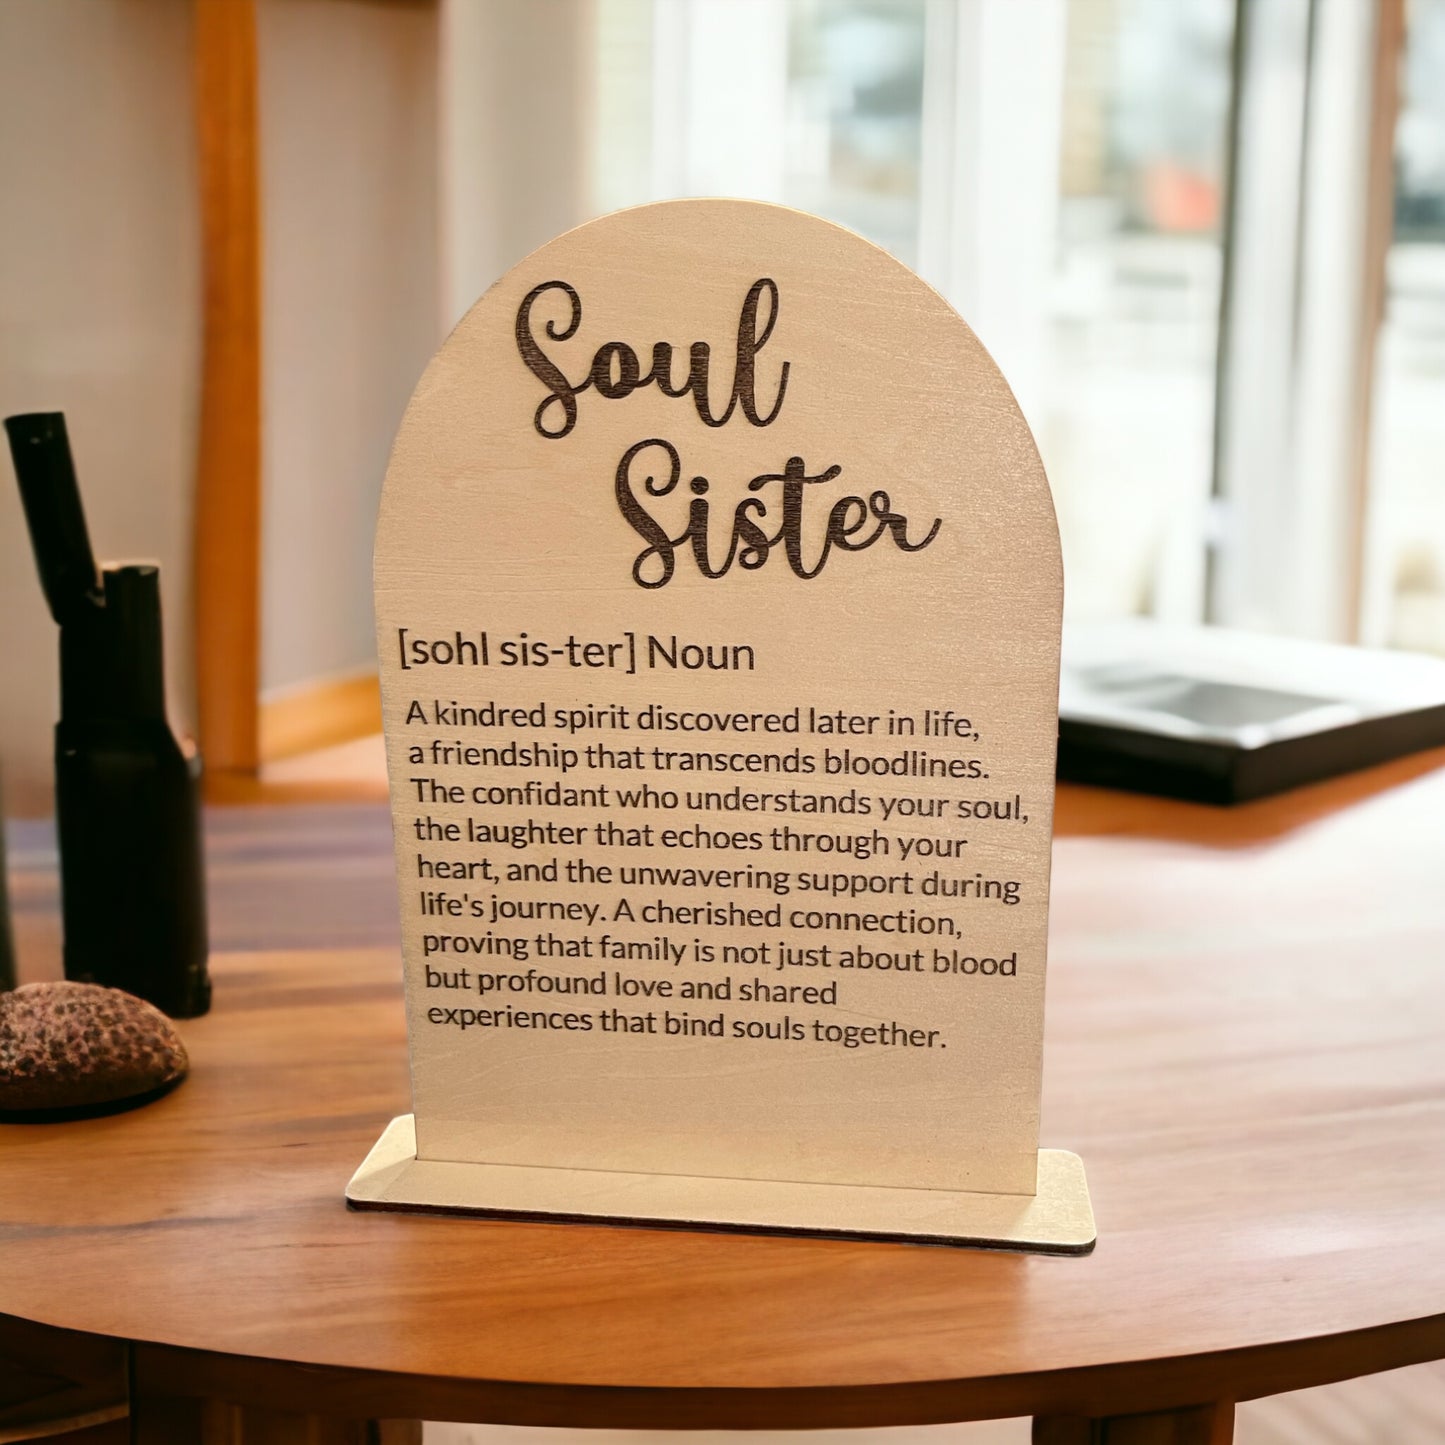 Soul
Sister
[sohl sis-ter] Noun
A kindred spirit discovered later in life,
a friendship that transcends bloodlines.
The confidant who understands your soul,
the laughter that echoes through your
heart, and the unwavering support during
life's journey. A cherished connection,
proving that family is not just about blood
but profound love and shared
experiences that bind souls together.